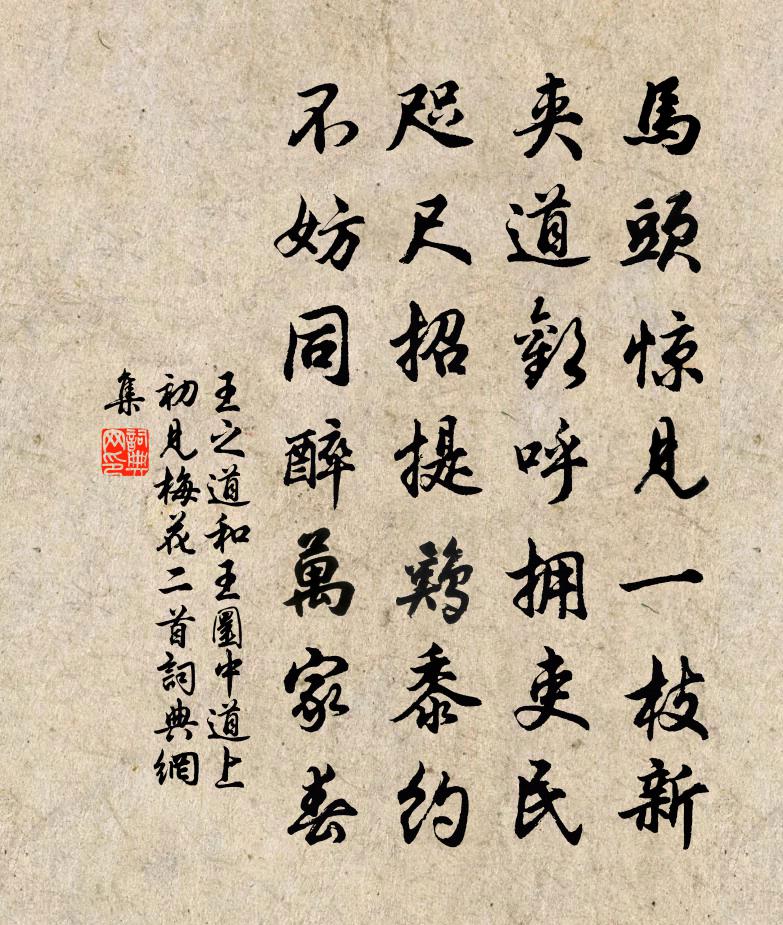 馬頭惊見一枝新
夹道歡呼拥吏民
咫尺招提鷄黍約
不妨同醉萬家春
王之道和王圖中道上
初見梅花二首詞典網
集
詞典
网印